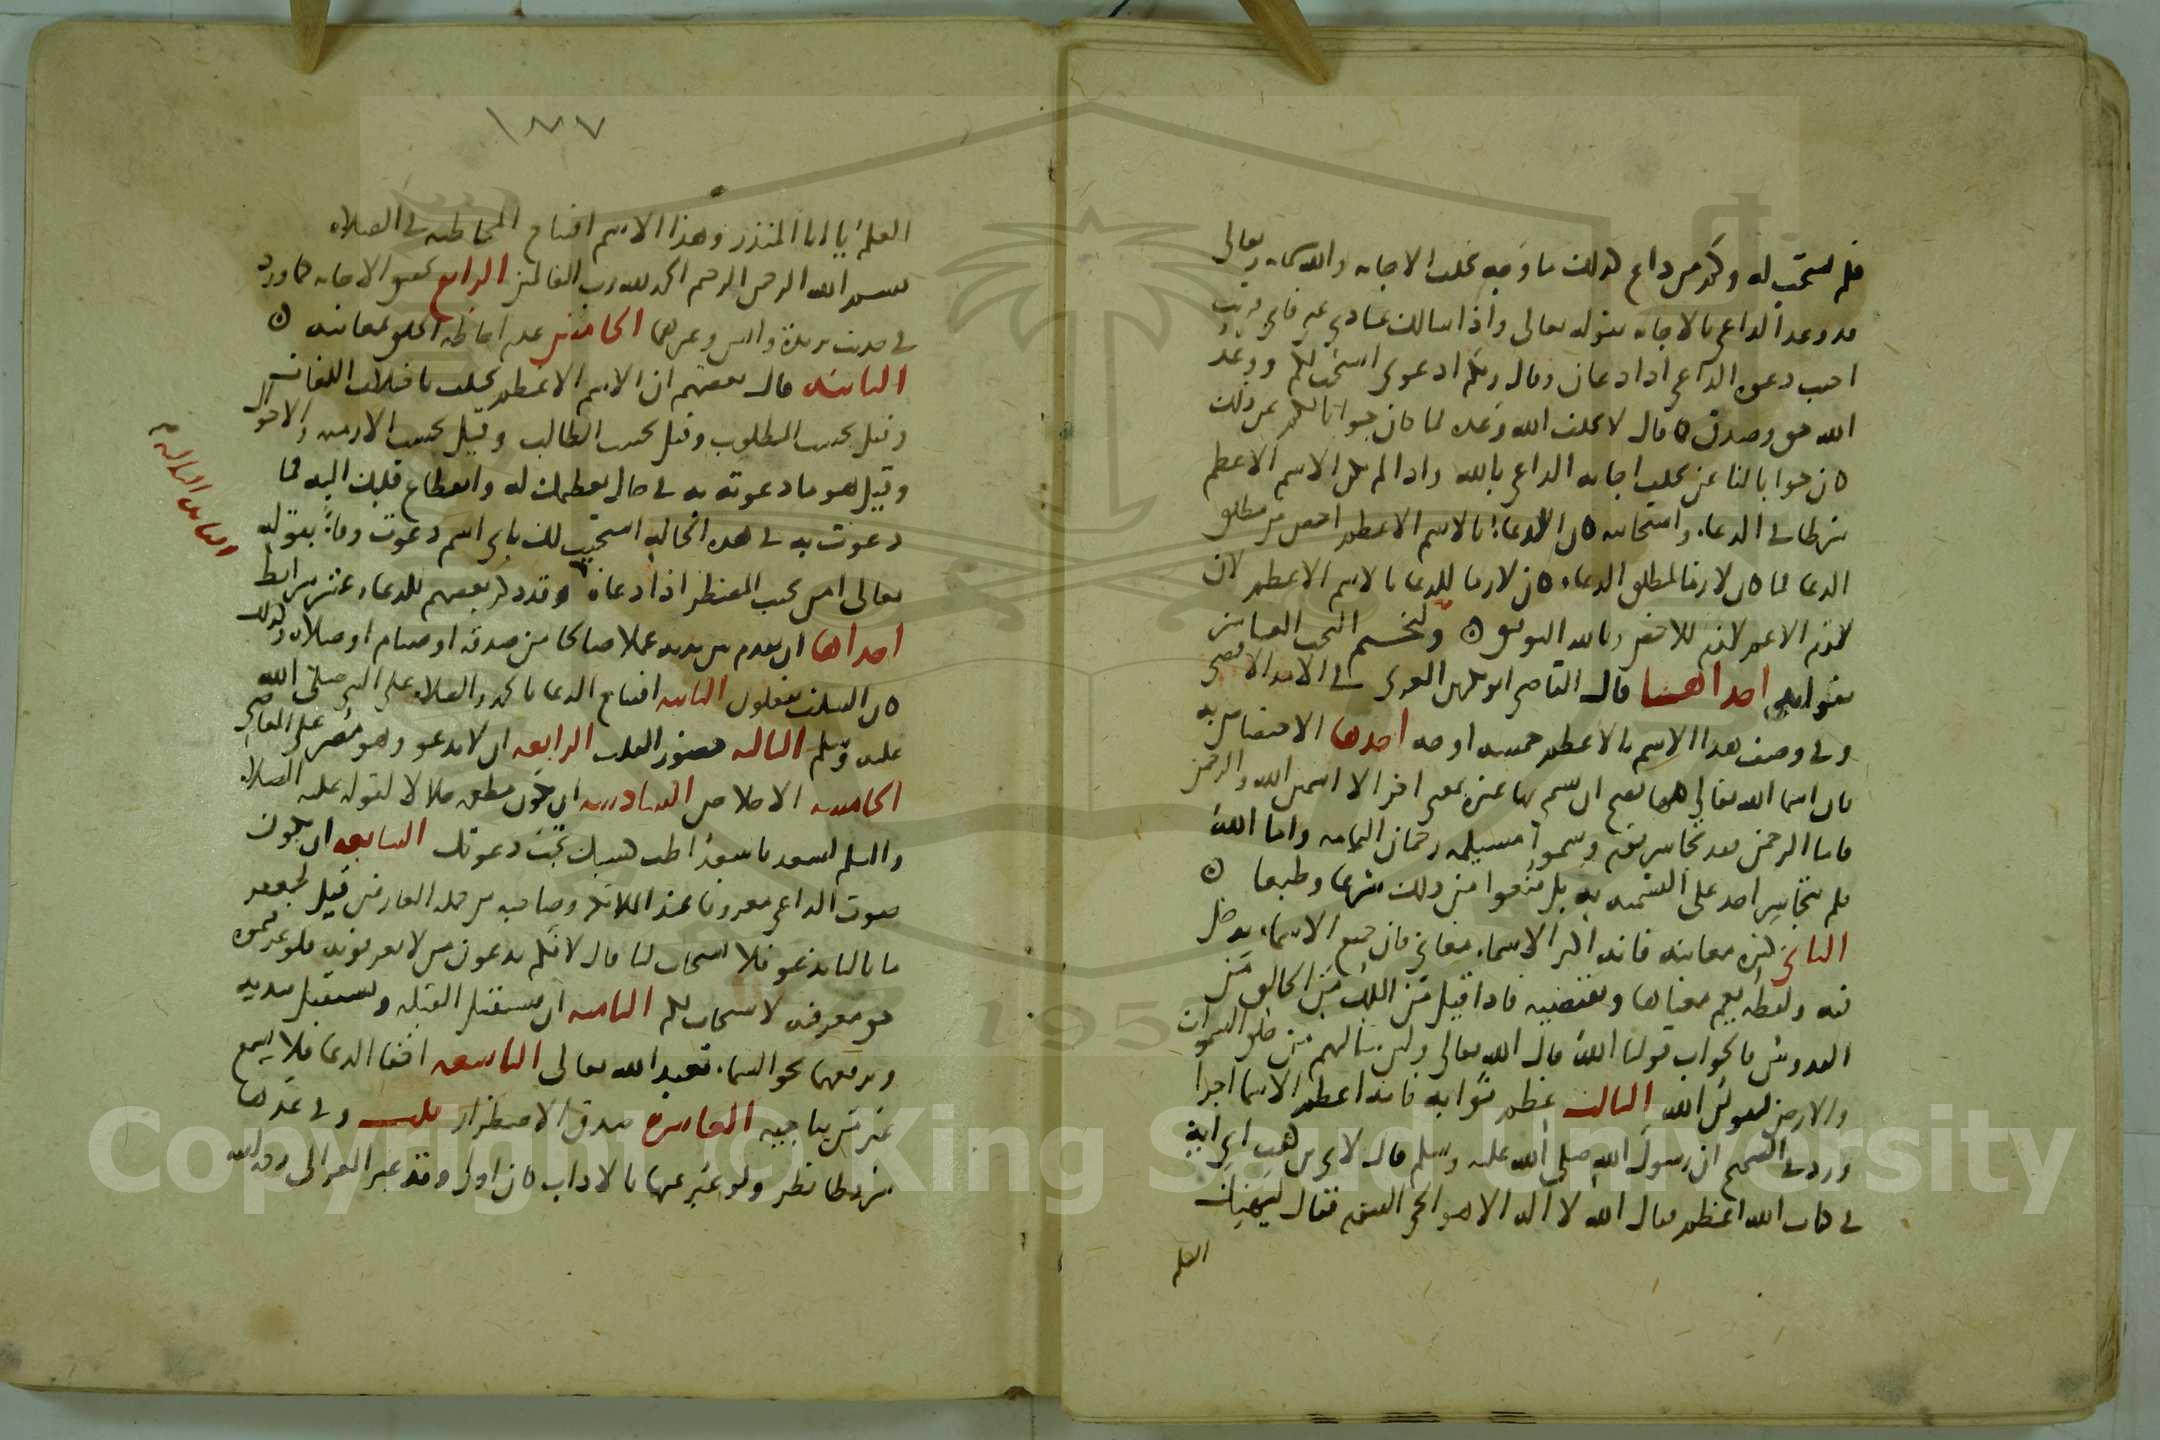 فلم يستجب له وكم من داع كذلك ما وجه تخلف الاجابه والله سبحانه وتعالى
قد وعد الداعي بالاجابه بقوله تعالى واذا سالك عبادي عني فاني قريب
اجيب دعوة الداعي اذا دعان وقال ربكم ادعوني استجب لكم ووعد
الله حق وصدق قال لا يخلف الله وعده لما كان جوابا لكم عن ذلك
كان جوابا لنا عن تخلف اجابه الداعي بالله واذا لم يكن الاسم الاعظم
شرطا في الدعاء واستجابته كان الدعاء بالاسم الاعظم اخص من مطلق
الدعا فما كان لازما لمطلق الدعاء كان لازما للدعا بالاسم الاعظم لان
لازم الاعم لازم للاخص وبالله التوفيق ولنختم البحث العباس
بفوايد احداها قال القاضي ابو بكر بن العربي في الامد الاقصى
وفي وصف هذا الاسم بالاعظم خمسه اوجه احدها الاختصاص به
فان اسما الله تعالى كلها يصح ان يسمى بها غيره بمعنى اخر الا اسمين الله والرحمن
فاما الرحمن فقد تجاسر بعضهم وسموا مسيلمه رحمان اليمامه واما الله
فلم يتجاسر احد على التسميه به بل منعوا من ذلك شرعا وطبعا
الثاني كثره معانيه فانه اكثر الاسماء معاني فان جميع الاسماء يدخل
فيه ولفظه يعم معناها ويقتضيه فاذا قيل من الملك من الخالق من
القدوس فالجواب قولنا الله قال الله تعالى ولين سالتهم من خلق السموات
والارض ليقولن الله الثالث عظم ثوابه فانه اعظم الاسما اجرا
ورد في الصحيح ان رسول الله صلى الله عليه وسلم قال لابي بن كعب اي اية
في كتاب الله اعظم فقال الله لا اله الا هو الحي القيوم فقال ليهنك
العلم
١٨٧
العلم يا ابا المنذر وهذا الاسم افتتاح المخاطبه في الصلاه
بسم الله الرحمن الرحيم الحمد لله رب العالمين الرابع تحقيق الاجابه كما ورد
في حديث بريدة وانس وغيرهما الخامس عدم احاطه الخلق بمعانيه
الثانيه قال بعضهم ان الاسم الاعظم يختلف باختلاف اللغات
وقيل بحسب المطلوب وقيل بحسب الطالب وقيل بحسب الازمنه والاحوال
وقيل هو ما دعوته به في حال تعظيمك له وانقطاع قلبك اليه فما
دعوت به في هذه الحاله استجيب لك باي اسم دعوت بقوله
تعالى امن يجيب المضطر اذا دعاه وقد ذكر بعضهم للدعاء عشر شرايط
احداها ان يقدم بين يديه عملا صالحا من صدقه او صيام او صلاه وكذلك
كان السلف يفعلون الثانيه افتتاح الدعا بالحمد والصلاه على النبي صلى الله
عليه وسلم الثالثه حضور القلب الرابعه ان لا يدعو وهو مصر على المعاصي
الخامسه الاخلاص السادسه ان يكون مطعمه حلالا لقوله عليه الصلاه
والسلم لسعد يا سعد اطب كسبك تجب دعوتك السابعه ان يكون
صوت الداعي معروفا عند الملائكه وصاحبه من جمله العارفين قيل لجعفر
ما بالنا ندعو فلا يستجاب لنا قال لانكم تدعون من لا تعرفونه فلو عرفتموه
حق معرفته لاستجاب لكم الثامنه ان يستقبل القبله ويستقبل بيديه
ويرفعهما نحو السماء تعبدا لله تعالى التاسعه اخفا الدعا فلا يسمع
غير من يناجيه العاشره صدق الاضطرار قلت وفي عد هذا
شرطا نظر ولو عبر عنها بالاداب كان اولى وقد عبر الغزالى رحمه الله